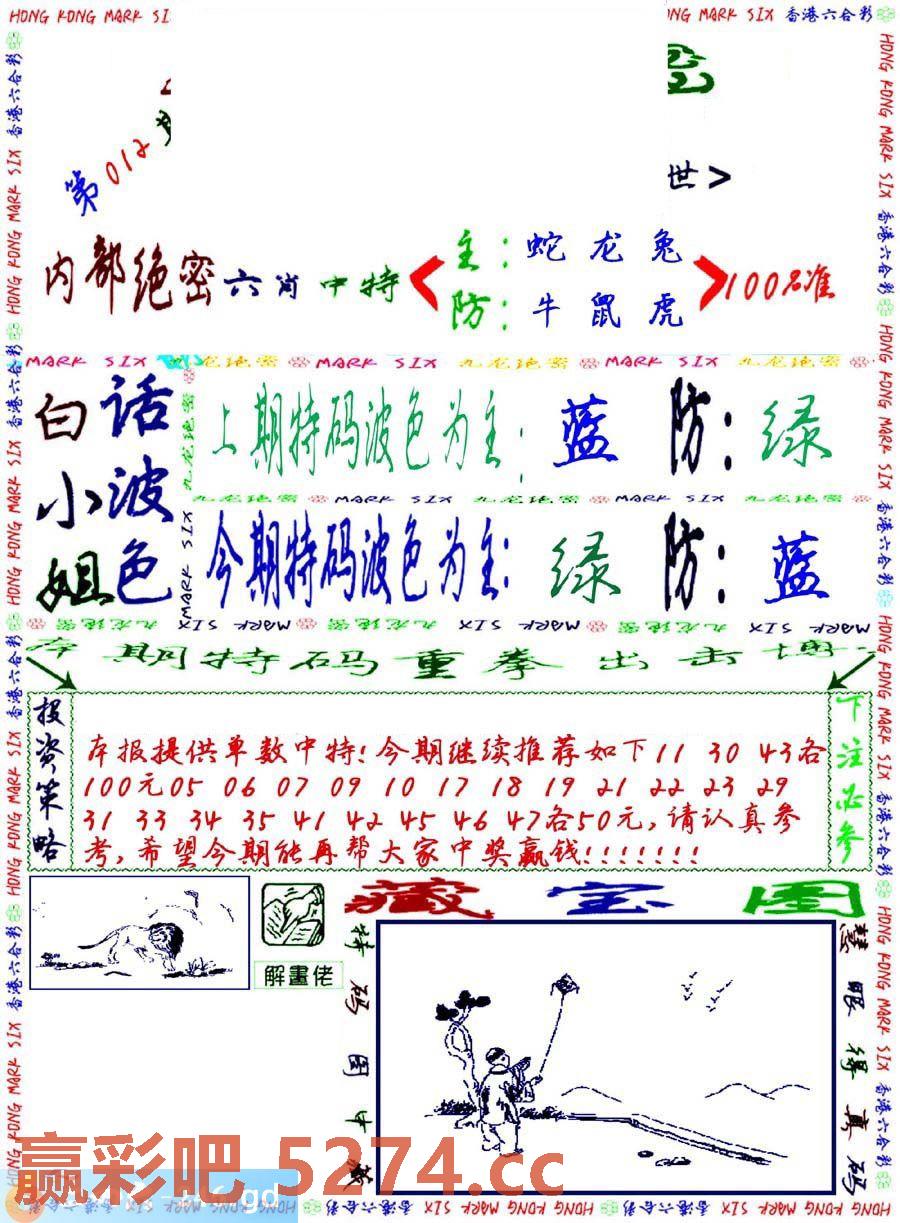 HONG KONG MARK SI
NG MARK SIX 香港六合彩
第012
世>
内部绝密六肖中特
主：蛇龙兔
防：牛鼠虎
100%准
MARK SIX 九龙绝密 MARK SIX 九龙绝密 MARK SIX 九龙绝密
白话小姐
波色
上期特码波色为主：蓝 防：绿
九龙绝密 MARK SIX 九龙绝密 MARK SIX 九龙绝密
今期特码波色为主：绿 防：蓝
九龙绝密 MARK SIX 九龙绝密 MARK SIX 九龙绝密 MARK SIX
本期特码重拳出击
投资策略
本报提供单数中特!今期继续推荐如下11 30 43各
100元05 06 07 09 10 17 18 19 21 22 23 29
31 33 34 35 41 42 45 46 47各50元,请认真参
考,希望今期能再帮大家中奖赢钱!!!!!!!
下注必参
藏宝图
解畫佬
特码图中藏
慧眼得真码
赢彩吧 5274.cc
HONG KONG MARK SIX 香港六合彩